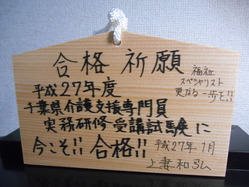 合格祈願
福祉
スペシャリスト
更なる一歩を!!
平成27年度
千葉県介護支援専門員
実務研修受講試験に
今こそ!! 合格!!
平成27年1月
上妻和弘